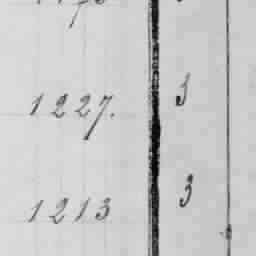 1227. 3
1213 3